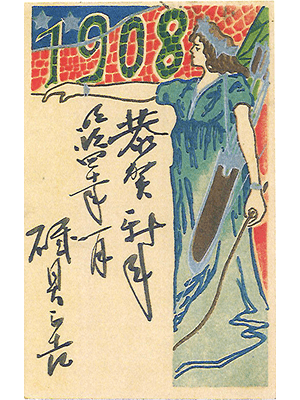 1908
恭賀新年
明治四十一年一月